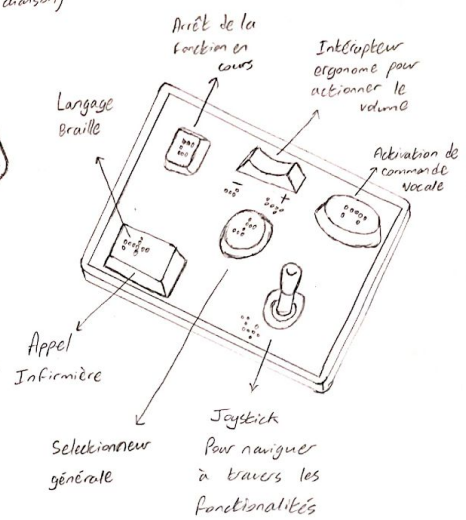 Arrêt de la
fonction en
cours
Intérupteur
ergonome pour
actionner le
volume
Langage
Braille
Activation de
commande
vocale
- +
Appel
Infirmière
Selectionneur
générale
Joystick
Pour naviguer
à travers les
fonctionalités